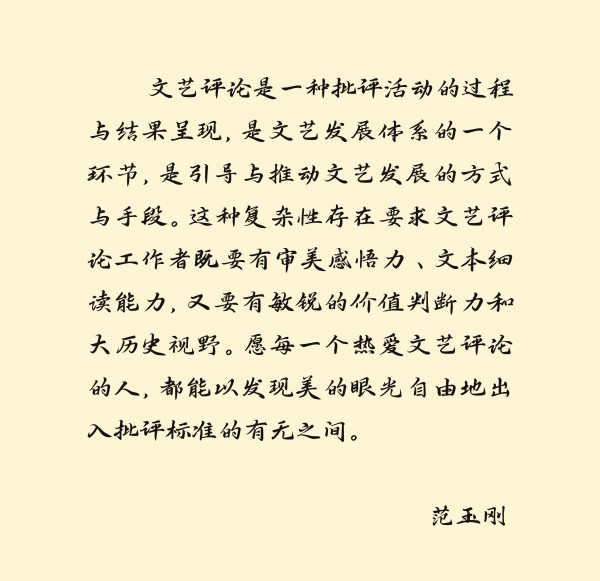 文艺评论是一种批评活动的过程
与结果呈现，是文艺发展体系的一个
环节，是引导与推动文艺发展的方式
与手段。这种复杂性存在要求文艺评
论工作者既要有审美感悟力、文本细
读能力，又要有敏锐的价值判断力和
大历史视野。愿每一个热爱文艺评论
的人，都能以发现美的眼光自由地出
入批评标准的有无之间。
范玉刚